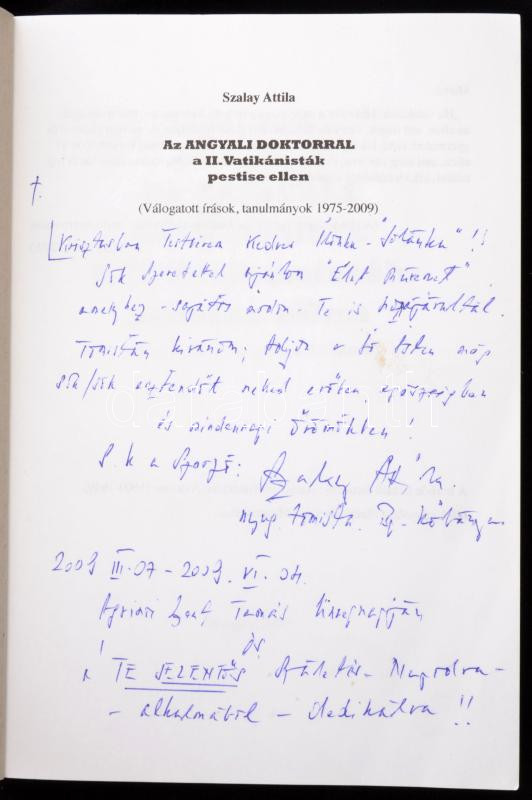 Szalay Attila
Az ANGYALI DOKTORRAL
a II.Vatikánisták
pestise ellen
†.
(Válogatott írások, tanulmányok 1975-2009)
Krisztusban Testvérem Kedves Ilonka - "Jolánka" !!
Sok szeretettel ajánlom "Élet művemet"
amelyhez - sajátos módon - Te is hozzájárultál.
Tomistán kívánom; adjon a Jó Isten még
sok/sok esztendőt neked erőben, egészségben
és mindennapi örömökben !
S.k a Szerző: Szalay Attila.
nyug. tomista. Bp. Kőbánya
2009 III.07 - 2009. VI. 04.
Aquinói Szent Tamás ünnepnapján
és
a TE JELENTŐS Születés - Napodra -
- alkalmából - dedikálva !!
darabanth